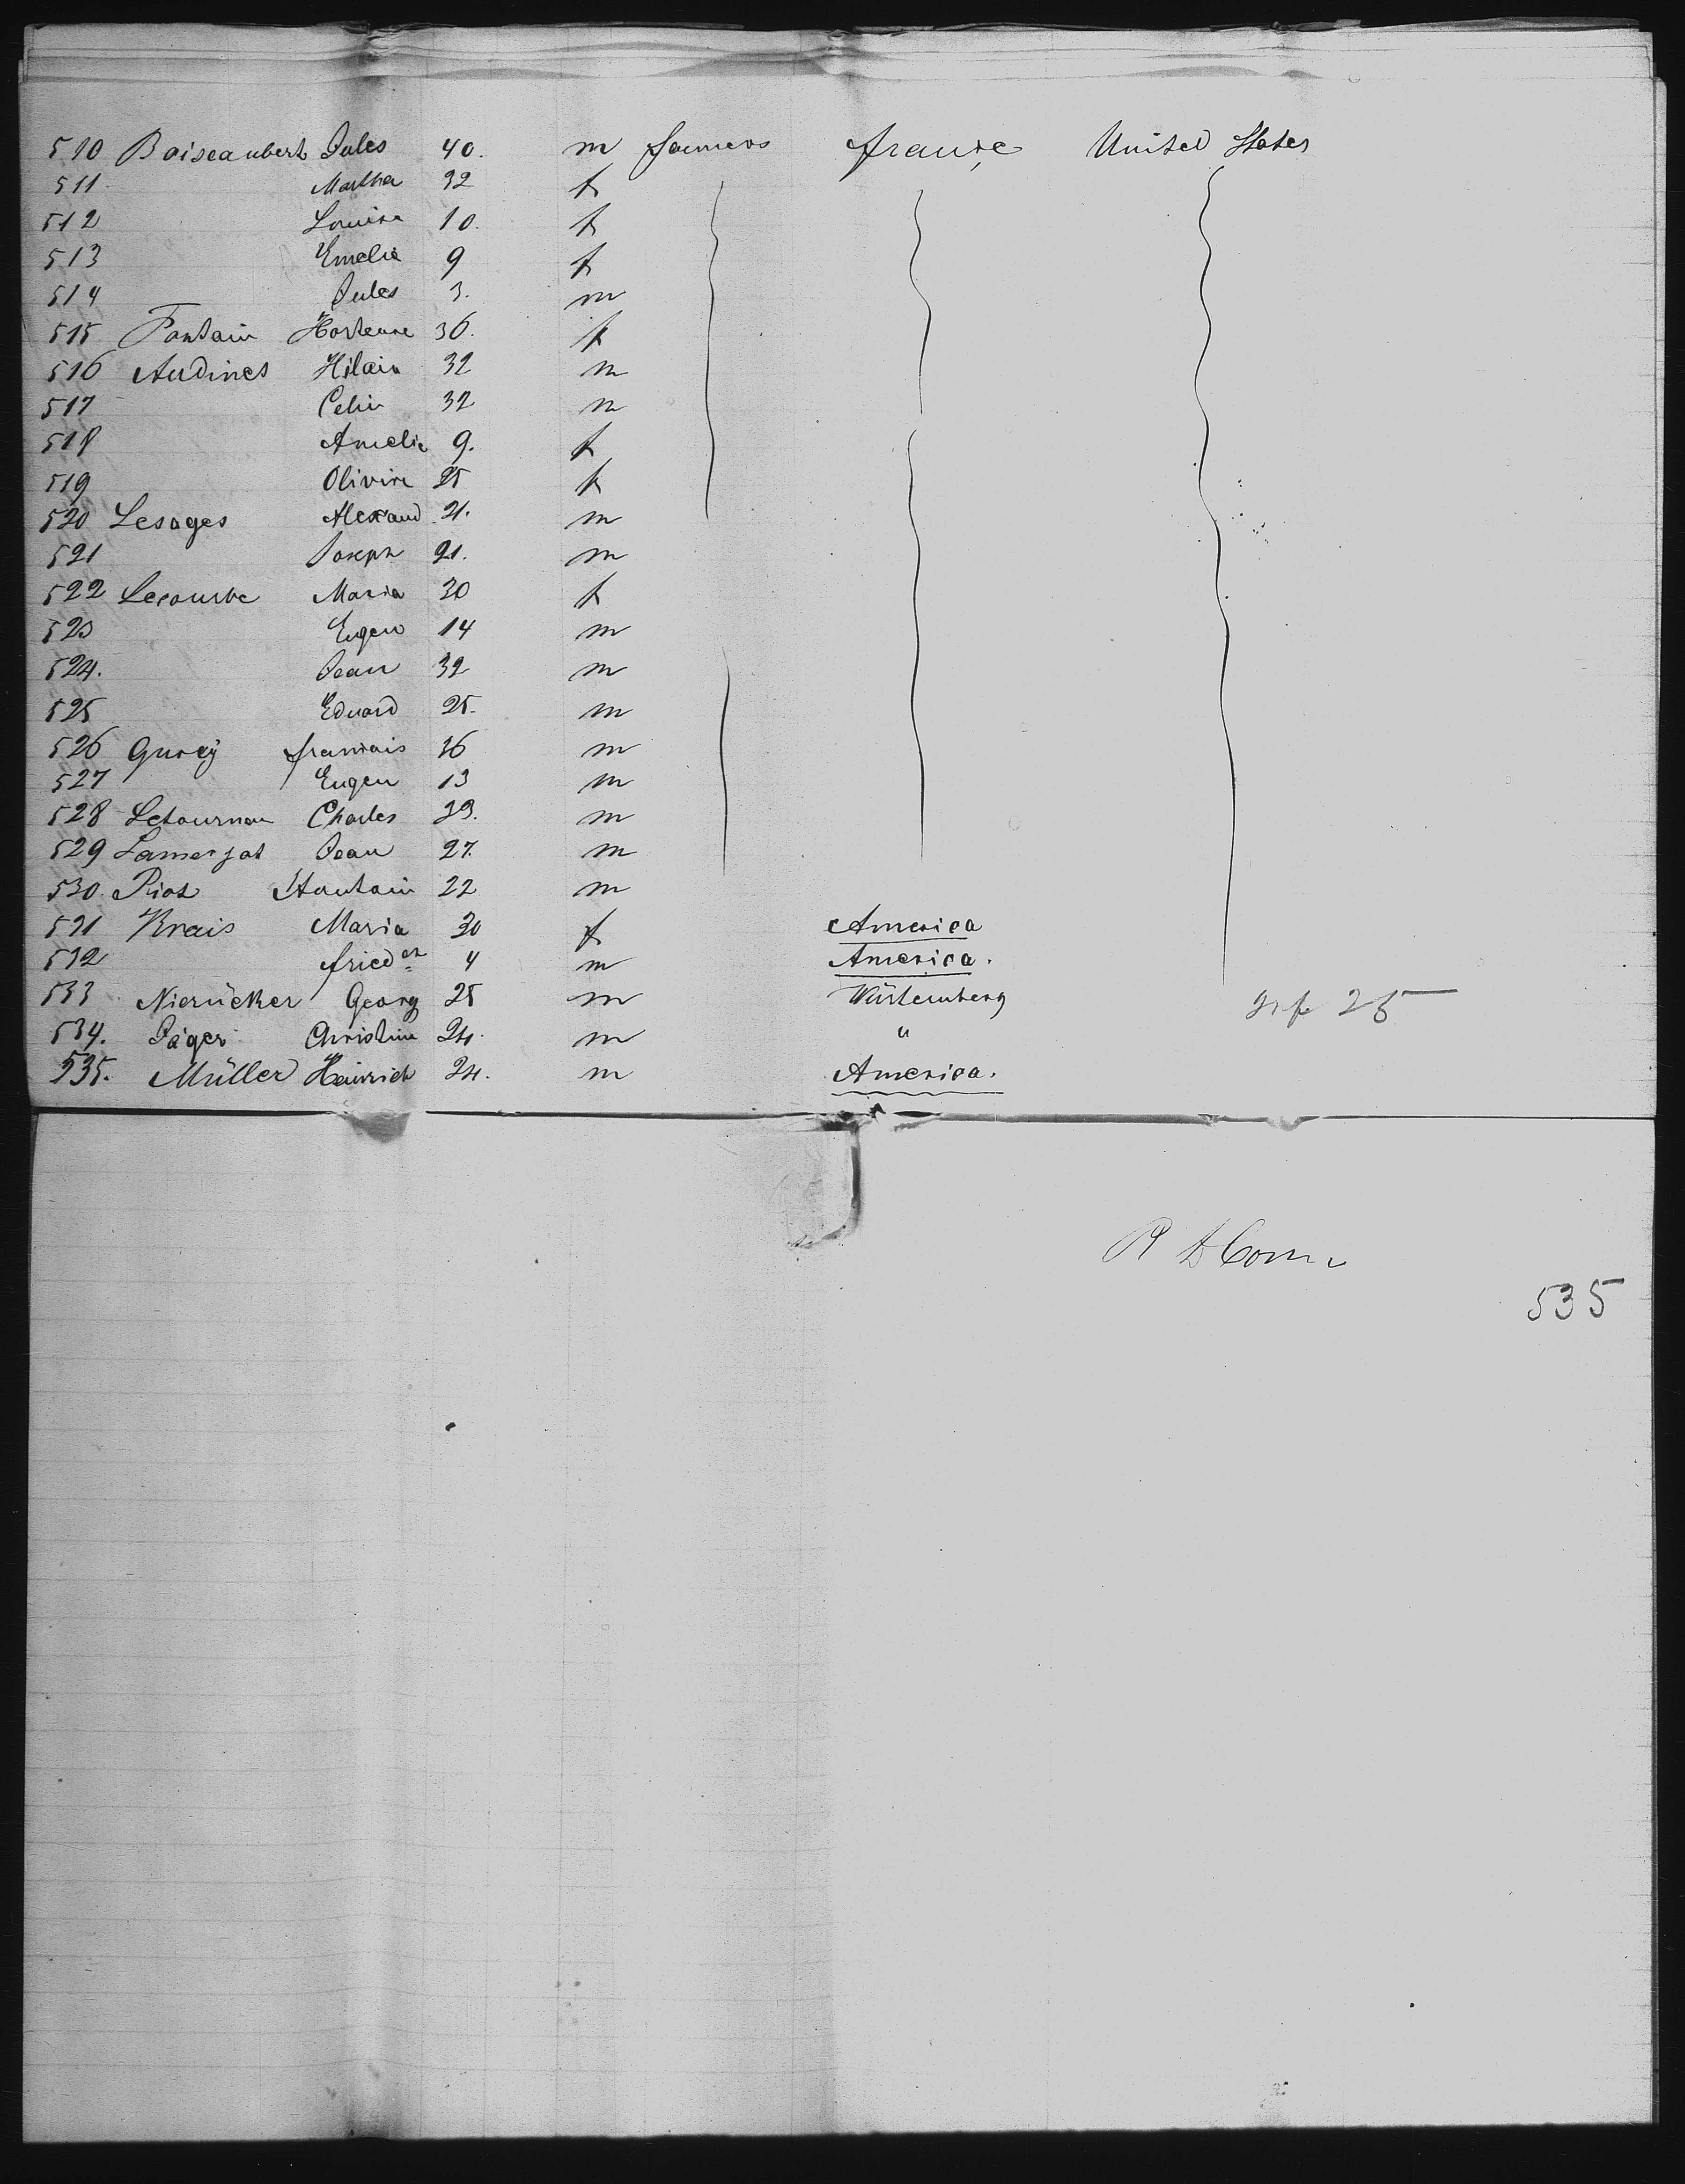 510 Boiseaubert Jules 40. m farmers france United States
511. Martha 32 f
512 Louise 10. f
513 Emelie 9 f
514 Jules 3. m
515 Fontain Hortense 36. f
516 Audines Hilair 32 m
517 Celin 32 m
518 Amelie 9. f
519 Olivire 25 f
520 Lesages Alexand. 21. m
521 Joseph 21. m
522 Lecourbe Maria 30 f
523 Eugen 14 m
524. Jean 32 m
525 Eduard 25. m
526 francais 36 m
527 Eugen 13 m
528 Letournau Charles 39. m
529 Jean 27. m
530. Riot 22 m
531 Krais Maria 30 f America
532 fried 4 m America.
533 Nierücker Georg 25 m Würtemberg
534. Jäger Christine 24. m "
535. Müller Heinrich 24. m America.
535